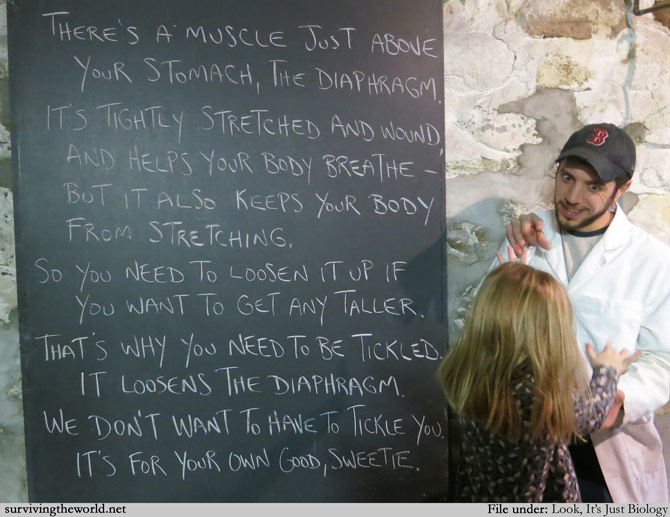 THERE'S A MUSCLE JUST ABOVE
YOUR STOMACH, THE DIAPHRAGM.
IT'S TIGHTLY STRETCHED AND WOUND,
AND HELPS YOUR BODY BREATHE –
BUT IT ALSO KEEPS YOUR BODY
FROM STRETCHING.
SO YOU NEED TO LOOSEN IT UP IF
YOU WANT TO GET ANY TALLER.
THAT'S WHY YOU NEED TO BE TICKLED.
IT LOOSENS THE DIAPHRAGM.
WE DON'T WANT TO HAVE TO TICKLE YOU.
IT'S FOR YOUR OWN GOOD, SWEETIE.
B
survivingtheworld.net
File under: Look, It's Just Biology